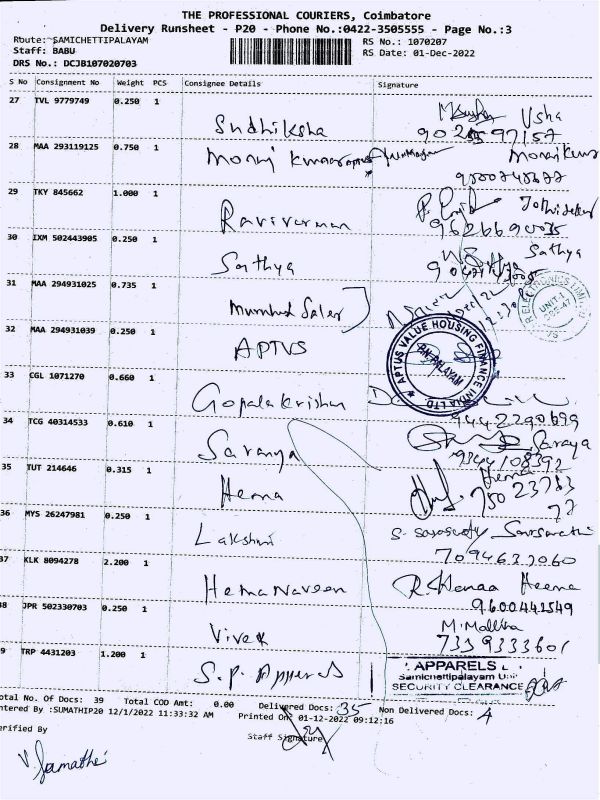 THE PROFESSIONAL COURIERS, Coimbatore
Delivery Runsheet - P20 - Phone No.:0422-3505555 - Page No.:3
Route: SAMICHETTIPALAYAM
RS No.: 1070207
Staff: BABU
RS Date: 01-Dec-2022
DRS No.: DCJB107020703
S No Consignment No Weight PCS Consignee Details Signature
27 TVL 9779749 0.250 1 Sudhiksha Usha
28 MAA 293119125 0.750 1
29 TKY 845662 1.000 1 Ravivarman
9626690035
30 IXM 502443905 0.250 1 Sathya Sathya
31 MAA 294931025 0.735 1 Mumbud Sales
32 MAA 294931039 0.250 1 APTUS
APTUS VALUE HOUSING FINANCE INDIA LTD.
33 CGL 1071270 0.660 1 Gopalakrishna
9442290699
34 TCG 40314533 0.610 1 Saranya Saraya
9344108392
35 TUT 214646 0.315 1 Hema Hema
75023783
77
36 MYS 26247981 0.250 1 Lakshmi
7094632060
37 KLK 8094278 2.200 1 Hema Naveen Heema
9600441549
38 JPR 502330703 0.250 1 Vivek M. Mallika
7339333601
9 TRP 4431203 1.200 1 S.P. Apperals
APPARELS
Samichettipalayam Unit
SECURITY CLEARANCE
otal No. Of Docs: 39 Total COD Amt: 0.00 Delivered Docs: 35 Non Delivered Docs: 4
ntered By :SUMATHIP20 12/1/2022 11:33:32 AM Printed On: 01-12-2022 09:12:16
Staff Signature
erified By
V. Sumathi